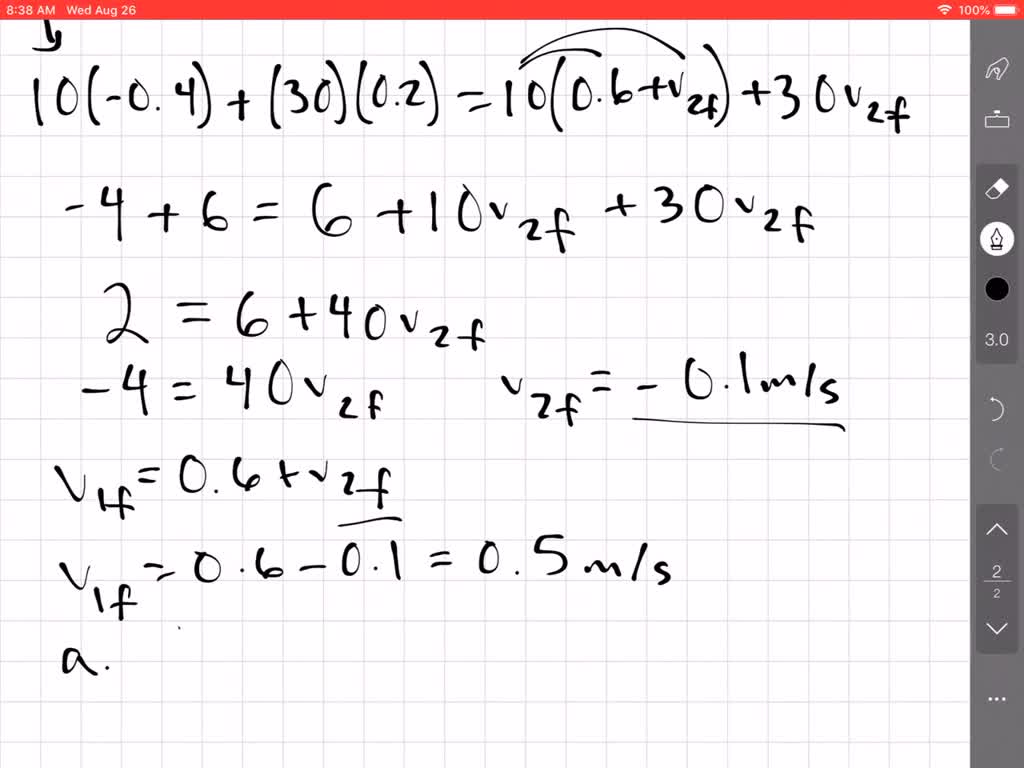 8:38 AM Wed Aug 26 100%
10(-0.4)+(30)(0.2)=10(0.6+v2f)+30v2f
-4+6=6+10v2f+30v2f
2=6+40v2f
-4=40v2f v2f=-0.1m/s
v1f=0.6+v2f
v1f=0.6-0.1=0.5m/s
a.
3.0
2
2